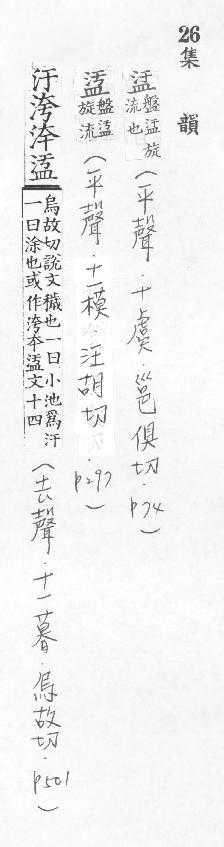 26
集韻
盓盤盓旋流也（平聲．十虞．邕俱切．p74）
盓盤盓旋流（平聲．十一模．汪胡切．p297）
汙洿洿盓烏故切說文穢也一曰小池爲汙一曰涂也或作洿盓文十四（去聲．十一暮．烏故切．p501）